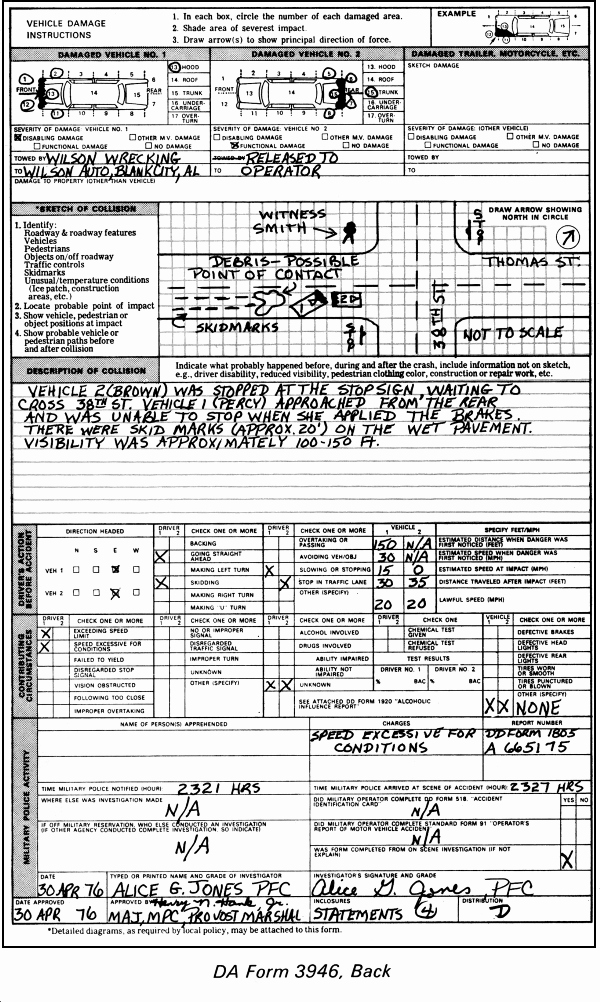 VEHICLE DAMAGE INSTRUCTIONS
1. In each box, circle the number of each damaged area.
2. Shade area of severest impact.
3. Draw arrow(s) to show principal direction of force.
EXAMPLE
DAMAGED VEHICLE NO. 1
DAMAGED VEHICLE NO. 2
DAMAGED TRAILER, MOTORCYCLE, ETC.
FRONT
REAR
13. HOOD
14. ROOF
15. TRUNK
16. UNDER-CARRIAGE
17. OVER-TURN
FRONT
REAR
13. HOOD
14. ROOF
15. TRUNK
16. UNDER-CARRIAGE
17. OVER-TURN
SKETCH DAMAGE
SEVERITY OF DAMAGE: VEHICLE NO. 1
DISABLING DAMAGE OTHER M.V. DAMAGE
FUNCTIONAL DAMAGE NO DAMAGE
SEVERITY OF DAMAGE: VEHICLE NO 2
DISABLING DAMAGE OTHER M.V. DAMAGE
FUNCTIONAL DAMAGE NO DAMAGE
SEVERITY OF DAMAGE: (OTHER VEHICLE)
DISABLING DAMAGE OTHER M.V. DAMAGE
FUNCTIONAL DAMAGE NO DAMAGE
TOWED BY WILSON WRECKING
TO WILSON AUTO, BLANK CITY, AL
TOWED BY RELEASED TO
TO OPERATOR
TOWED BY
TO
DAMAGE TO PROPERTY (OTHER THAN VEHICLE)
*SKETCH OF COLLISION
1. Identify:
Roadway & roadway features
Vehicles
Pedestrians
Objects on/off roadway
Traffic controls
Skidmarks
Unusual/temperature conditions
(Ice patch, construction
areas, etc.)
2. Locate probable point of impact
3. Show vehicle, pedestrian or
object positions at impact
4. Show probable vehicle or
pedestrian paths before
and after collision
WITNESS
SMITH
DEBRIS-POSSIBLE
POINT OF CONTACT
SKIDMARKS
STOP
STOP
38TH ST
DRAW ARROW SHOWING
NORTH IN CIRCLE
THOMAS ST.
NOT TO SCALE
DESCRIPTION OF COLLISION
Indicate what probably happened before, during and after the crash, include information not on sketch,
e.g., driver disability, reduced visibility, pedestrian clothing color, construction or repair work, etc.
VEHICLE 2 (BROWN) WAS STOPPED AT THE STOP SIGN, WAITING TO
CROSS 38TH ST VEHICLE 1 (PERCY) APPROACHED FROM THE REAR
AND WAS UNABLE TO STOP WHEN SHE APPLIED THE BRAKES.
THERE WERE SKID MARKS (APPROX. 20') ON THE WET PAVEMENT.
VISIBILITY WAS APPROXIMATELY 100-150 FT.
DRIVER'S ACTION BEFORE ACCIDENT
DIRECTION HEADED
N S E W
VEH 1 X
VEH 2 X
DRIVER 1 2 CHECK ONE OR MORE
BACKING
X GOING STRAIGHT AHEAD
MAKING LEFT TURN
X SKIDDING
MAKING RIGHT TURN
MAKING 'U' TURN
DRIVER 1 2 CHECK ONE OR MORE
OVERTAKING OR PASSING
AVOIDING VEH/OBJ
X SLOWING OR STOPPING
X STOP IN TRAFFIC LANE
OTHER (SPECIFY)
VEHICLE 1 2 SPECIFY FEET/MPH
150 N/A ESTIMATED DISTANCE WHEN DANGER WAS FIRST NOTICED (FEET)
30 N/A ESTIMATED SPEED WHEN DANGER WAS FIRST NOTICED (MPH)
15 0 ESTIMATED SPEED AT IMPACT (MPH)
30 35 DISTANCE TRAVELED AFTER IMPACT (FEET)
20 20 LAWFUL SPEED (MPH)
CONTRIBUTING CIRCUMSTANCES
DRIVER 1 2 CHECK ONE OR MORE
X EXCEEDING SPEED LIMIT
X SPEED EXCESSIVE FOR CONDITIONS
FAILED TO YIELD
DISREGARDED STOP SIGNAL
VISION OBSTRUCTED
FOLLOWING TOO CLOSE
IMPROPER OVERTAKING
DRIVER 1 2 CHECK ONE OR MORE
NO OR IMPROPER SIGNAL
DISREGARDED TRAFFIC SIGNAL
IMPROPER TURN
UNKNOWN
OTHER (SPECIFY)
DRIVER 1 2 CHECK ONE OR MORE
ALCOHOL INVOLVED
DRUGS INVOLVED
ABILITY IMPAIRED
ABILITY NOT IMPAIRED
X X UNKNOWN
SEE ATTACHED DD FORM 1920 "ALCOHOLIC INFLUENCE REPORT"
DRIVER 1 2 CHECK ONE
CHEMICAL TEST GIVEN
CHEMICAL TEST REFUSED
TEST RESULTS
DRIVER NO. 1 DRIVER NO 2
% BAC % BAC
VEHICLE 1 2 CHECK ONE OR MORE
DEFECTIVE BRAKES
DEFECTIVE HEAD LIGHTS
DEFECTIVE REAR LIGHTS
TIRES WORN OR SMOOTH
TIRES PUNCTURED OR BLOWN
X X OTHER (SPECIFY)
NONE
MILITARY POLICE ACTIVITY
NAME OF PERSON(S) APPREHENDED
CHARGES
REPORT NUMBER
SPEED EXCESSIVE FOR DD FORM 1805
CONDITIONS A 665175
TIME MILITARY POLICE NOTIFIED (HOUR) 2321 HRS
TIME MILITARY POLICE ARRIVED AT SCENE OF ACCIDENT (HOUR) 2327 HRS
WHERE ELSE WAS INVESTIGATION MADE
N/A
DID MILITARY OPERATOR COMPLETE DD FORM 518. "ACCIDENT IDENTIFICATION CARD"
N/A
YES NO
IF OFF MILITARY RESERVATION, WHO ELSE CONDUCTED AN INVESTIGATION
(IF OTHER AGENCY CONDUCTED COMPLETE INVESTIGATION, SO INDICATE)
N/A
DID MILITARY OPERATOR COMPLETE STANDARD FORM 91 "OPERATOR'S REPORT OF MOTOR VEHICLE ACCIDENT"
N/A
WAS FORM COMPLETED FROM ON SCENE INVESTIGATION (IF NOT EXPLAIN)
X
DATE
30 APR 76
TYPED OR PRINTED NAME AND GRADE OF INVESTIGATOR
ALICE G. JONES PFC
INVESTIGATOR'S SIGNATURE AND GRADE
Alice G. Jones, PFC
DATE APPROVED
30 APR 76
APPROVED BY Henry N. Hank Jr.
MAJ, MPC, PROVOST MARSHAL
INCLOSURES
STATEMENTS (4)
DISTRIBUTION
D
*Detailed diagrams, as required by local policy, may be attached to this form.
DA Form 3946, Back